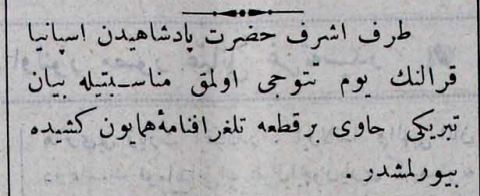 طرف اشرف حضرت پادشاهیدن اسپانیا
قرالنك یوم تتوجی اولمق مناسبتیله بیان
تبریكی حاوی برقطعه تلغرافنامهٔ همایون كشیده
بیورلمشدر .